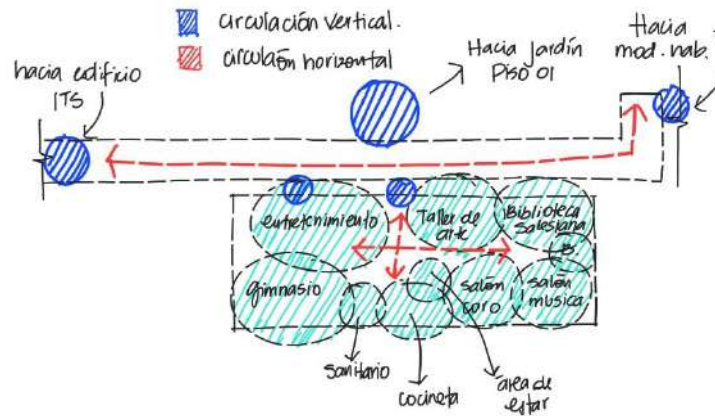 circulación vertical.
circulaón horizontal
hacia edificio
ITS
Hacia jardín
Piso 01
Hacia
mod. hab.
entretenimiento
Taller de
arte
Biblioteca
Salesiana
B
gimnasio
salón
coro
salón
musica
sanitario
cocineta
área de
estar